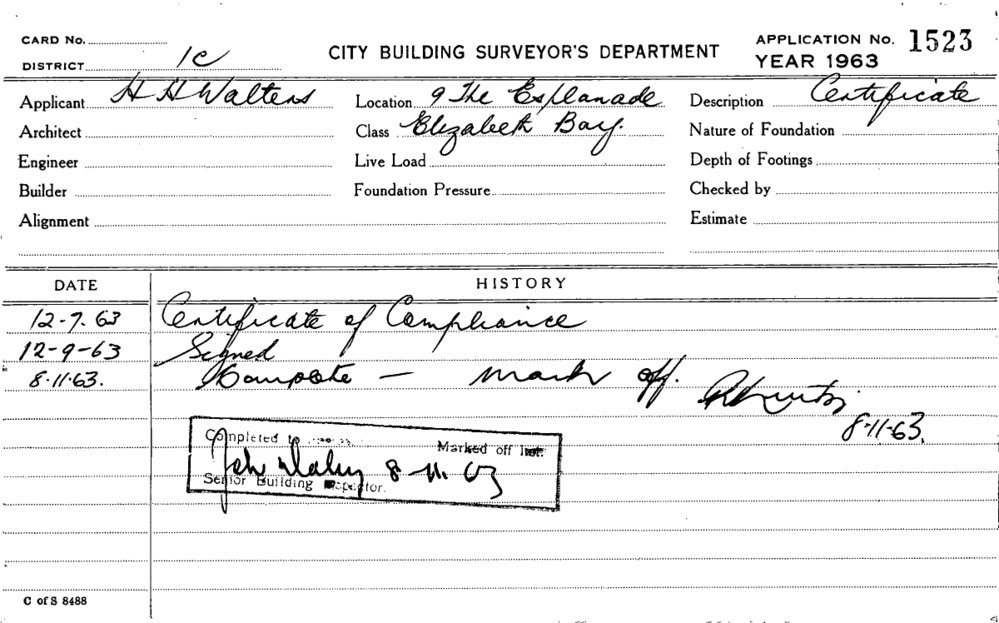 CARD No.
DISTRICT 1C
CITY BUILDING SURVEYOR'S DEPARTMENT
APPLICATION No. 1523
YEAR 1963
Applicant H H Walters Location 9 The Esplanade Description Certificate
Architect Class Elizabeth Bay. Nature of Foundation
Engineer Live Load Depth of Footings
Builder Foundation Pressure Checked by
Alignment Estimate
DATE HISTORY
12-7-63 Certificate of Compliance
12-9-63 Signed
8.11.63. Complete – mark off.
8-11-63.
Completed Marked off
8-11-63
Senior Building Inspector.
C of S 8488